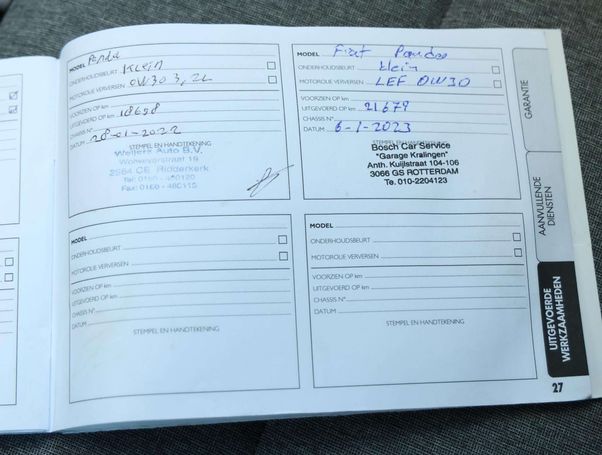 MODEL Panda
ONDERHOUDSBEURT Klein
MOTOROLIE VERVERSEN 0W30 3,2L
VOORZIEN OP km
UITGEVOERD OP km 18698
CHASSIS N°
DATUM 28-01-2022
STEMPEL EN HANDTEKENING
Auto B.V.
Ridderkerk
MODEL Fiat Panda
ONDERHOUDSBEURT klein
MOTOROLIE VERVERSEN LEF 0W30
VOORZIEN OP km
UITGEVOERD OP km 21679
CHASSIS N°
DATUM 6-1-2023
STEMPEL EN HANDTEKENING
Bosch Car Service
"Garage Kralingen"
Anth. Kuijlstraat 104-106
3066 GS ROTTERDAM
Te. 010-2204123
MODEL
ONDERHOUDSBEURT
MOTOROLIE VERVERSEN
VOORZIEN OP km
UITGEVOERD OP km
CHASSIS N°
DATUM
STEMPEL EN HANDTEKENING
MODEL
ONDERHOUDSBEURT
MOTOROLIE VERVERSEN
VOORZIEN OP km
UITGEVOERD OP km
CHASSIS N°
DATUM
STEMPEL EN HANDTEKENING
GARANTIE
AANVULLENDE
DIENSTEN
UITGEVOERDE
WERKZAAMHEDEN
27